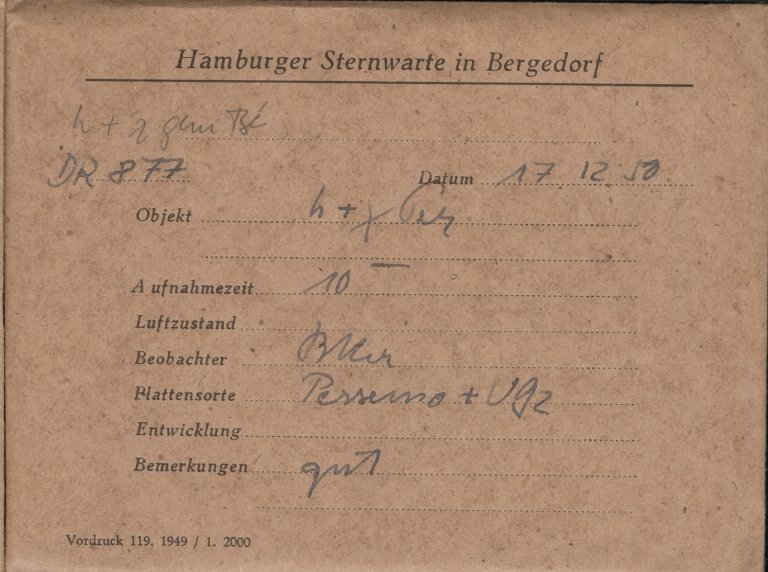 Hamburger Sternwarte in Bergedorf
h + χ
DR 877 Datum 17. 12. 50
Objekt h + χ Per
Aufnahmezeit 10
Luftzustand
Beobachter
Plattensorte Perseno + UG2
Entwicklung
Bemerkungen gut
Vordruck 119. 1949 / 1. 2000